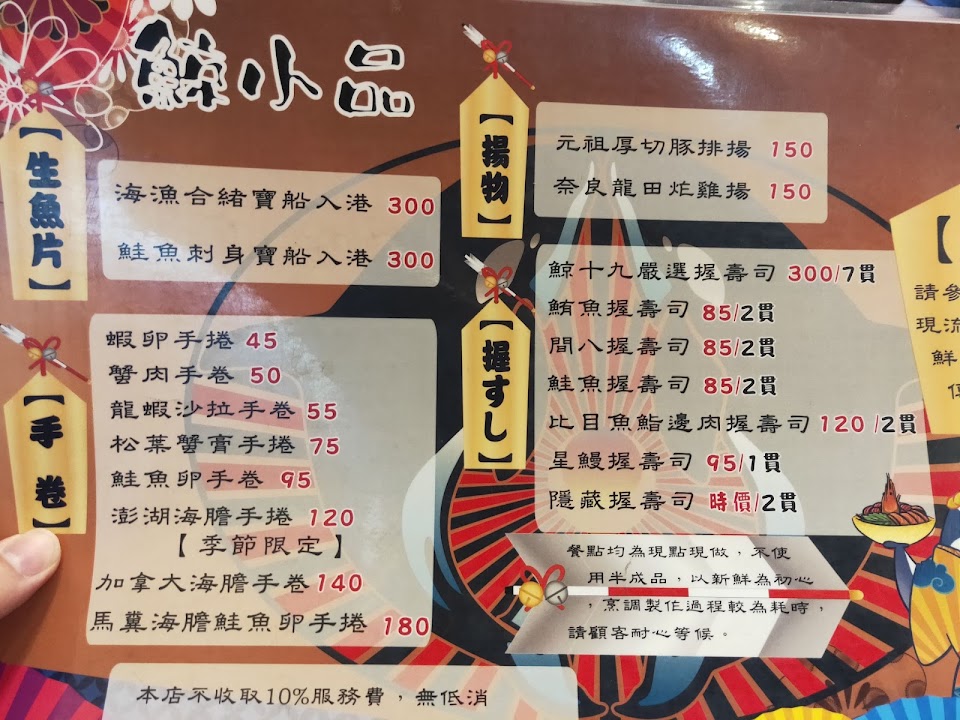 鯨小品
【生魚片】
海漁合緒寶船入港 300
鮭魚刺身寶船入港 300
【手卷】
蝦卵手捲 45
蟹肉手卷 50
龍蝦沙拉手卷 55
松葉蟹膏手捲 75
鮭魚卵手卷 95
澎湖海膽手捲 120
【季節限定】
加拿大海膽手卷 140
馬糞海膽鮭魚卵手捲 180
【揚物】
元祖厚切豚排揚 150
奈良龍田炸雞揚 150
【握すし】
鯨十九嚴選握壽司 300/7貫
鮪魚握壽司 85/2貫
間八握壽司 85/2貫
鮭魚握壽司 85/2貫
比目魚鮨邊肉握壽司 120 /2貫
星鰻握壽司 95/1貫
隱藏握壽司 時價/2貫
餐點均為現點現做，不使
用半成品，以新鮮為初心
，烹調製作過程較為耗時，
請顧客耐心等候。
本店不收取10%服務費，無低消
【
請參
現流
鮮